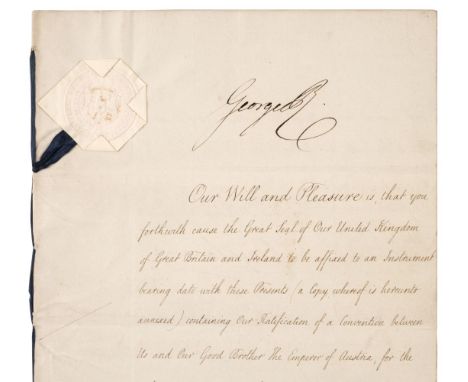 George R.
Our Will and Pleasure is, that you
forthwith cause the Great Seal of Our United Kingdom
of Great Britain and Ireland to be affixed to an Instrument
bearing date with these Presents (a Copy whereof is hereunto
annexed) containing Our Ratification of a Convention between
Us and Our Good Brother The Emperor of Austria, for the